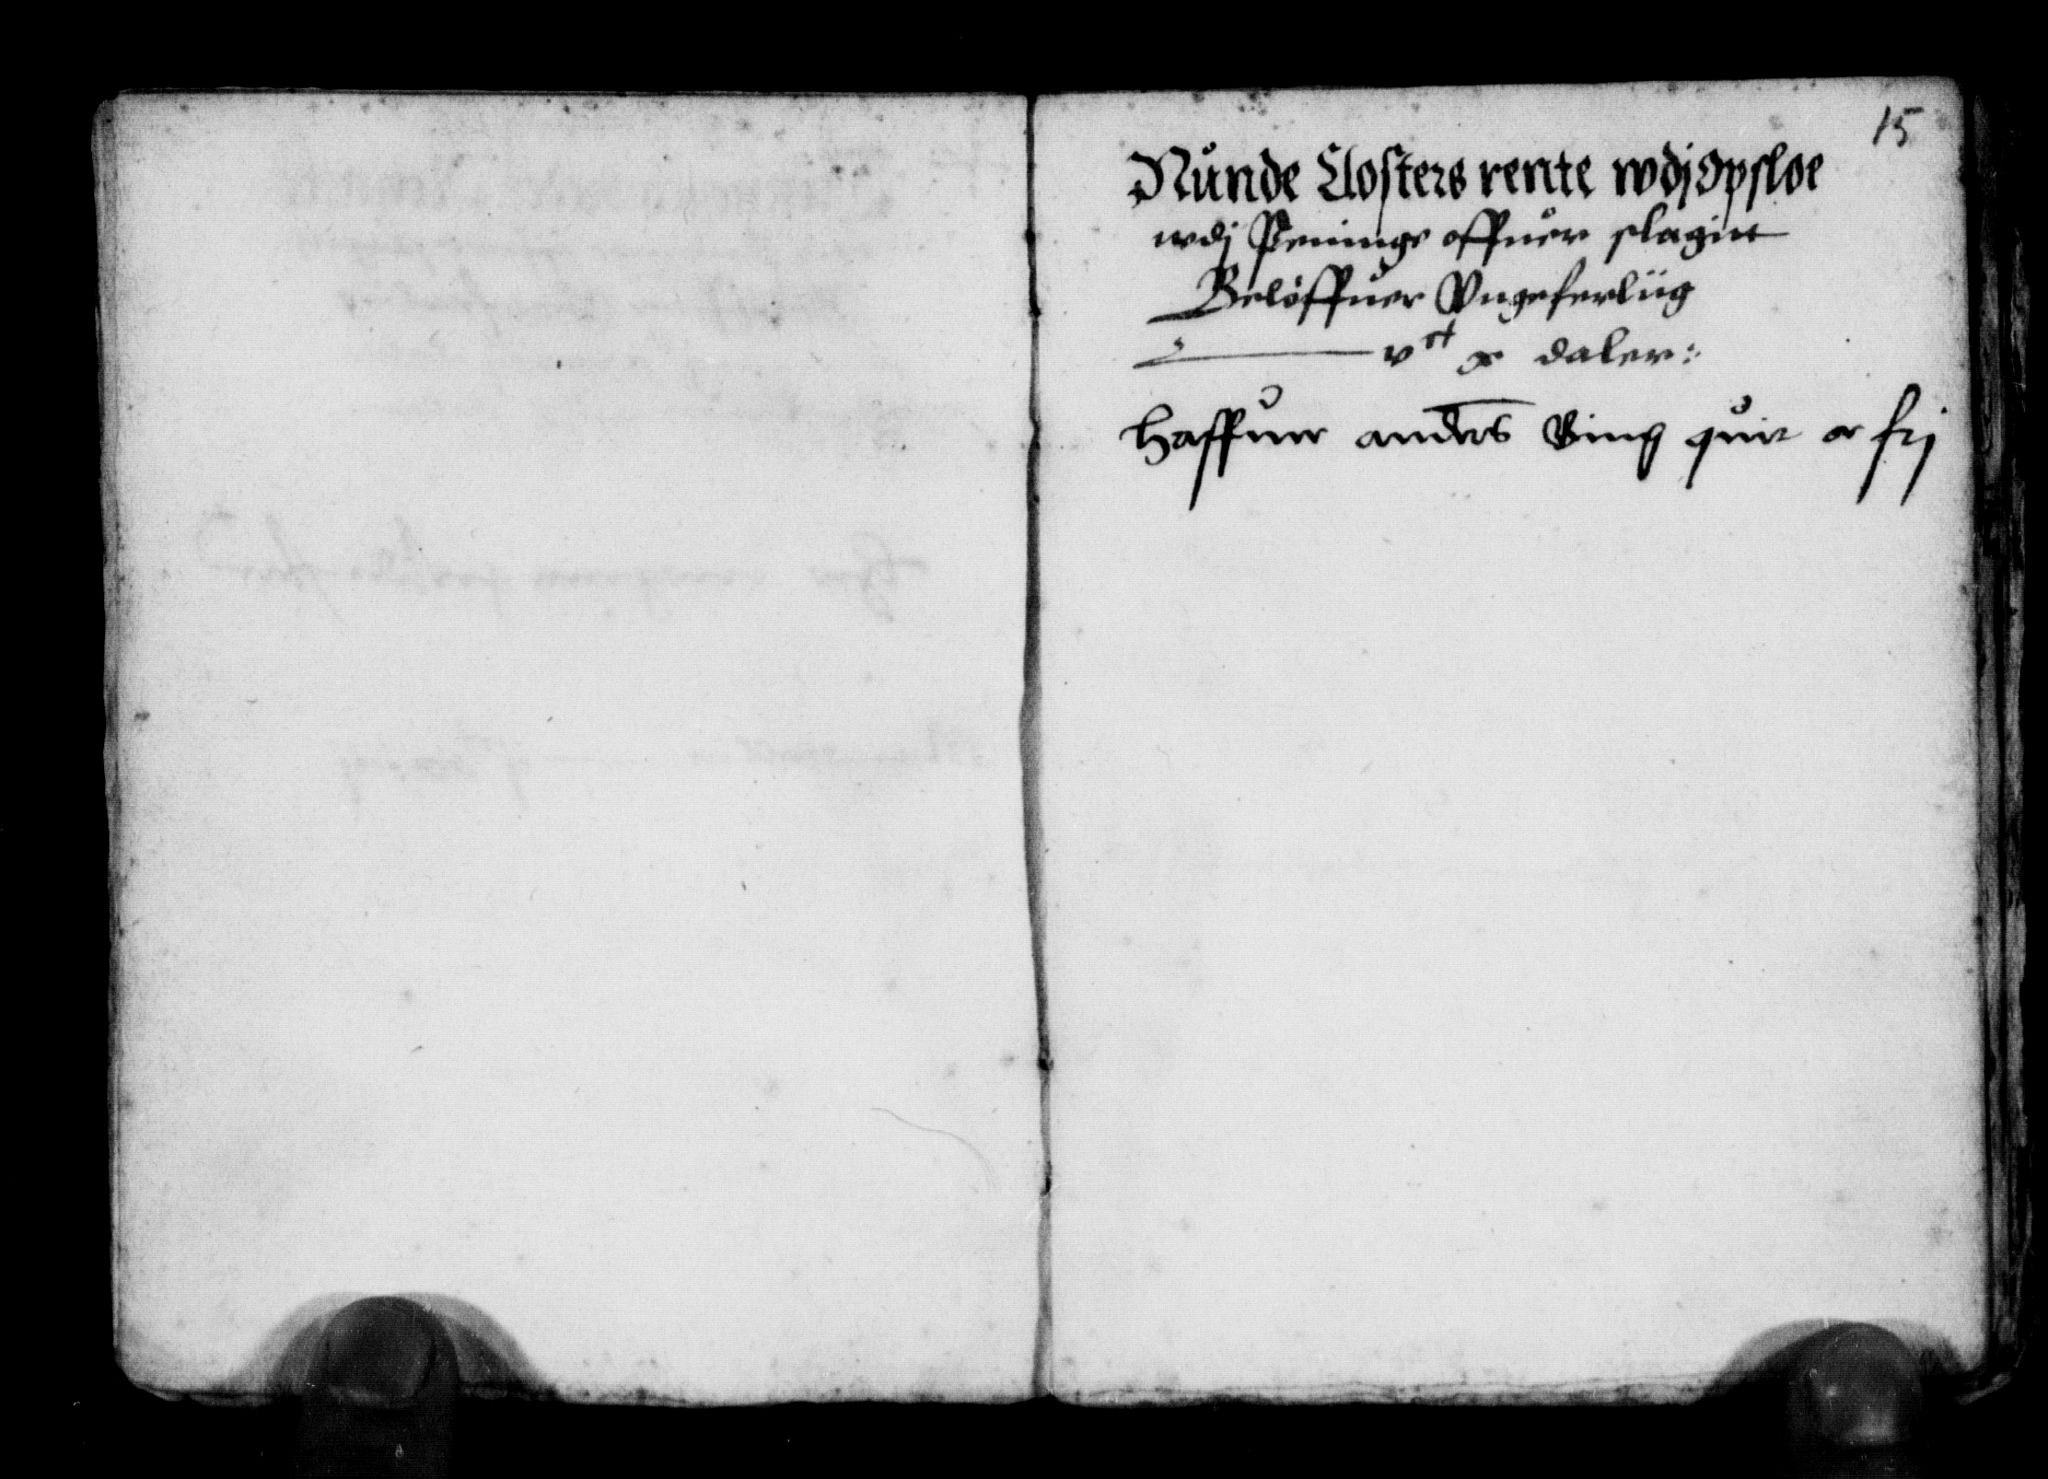 15
Nunde Closters rente wdj Opsloe
wdj Peninge offuer slagitt
Beløffuer Vngeferliig
v^ct x daler:
Haffuer anders Bing quit oc frj